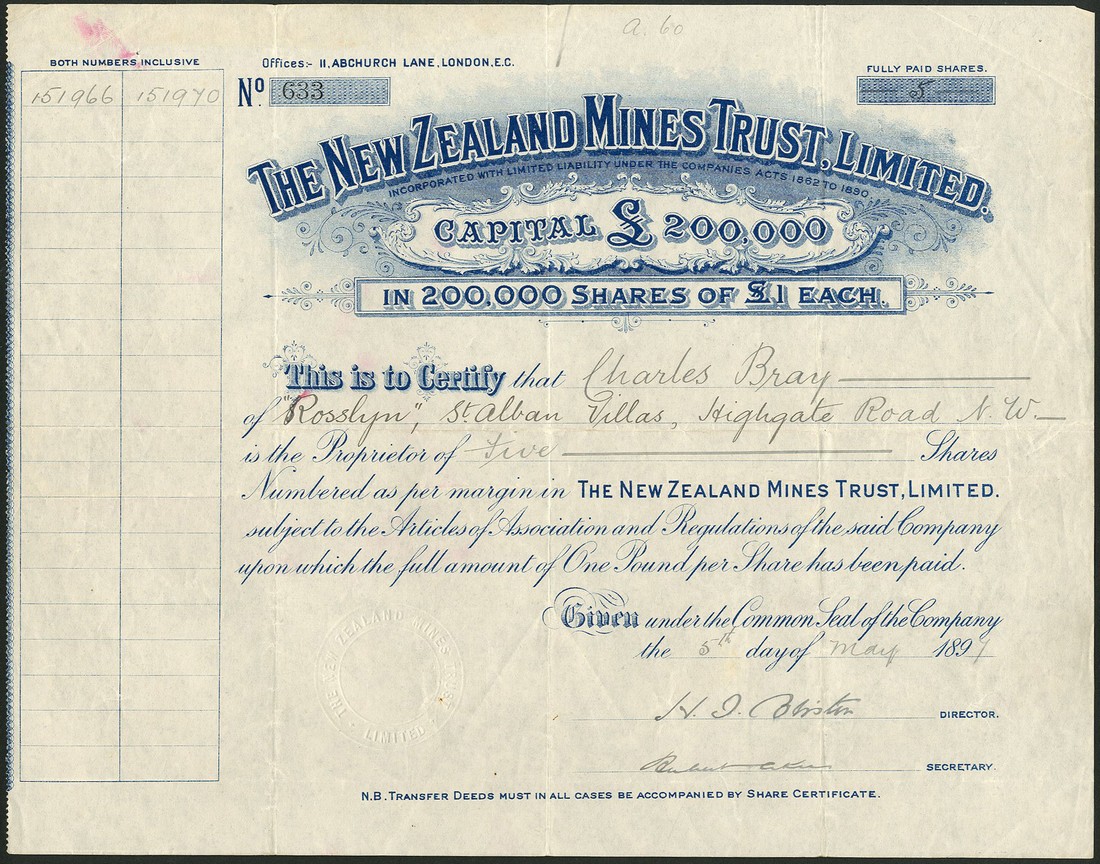 a. 60
BOTH NUMBERS INCLUSIVE
151966 151970
Offices:- 11, ABCHURCH LANE, LONDON, E.C.
Nº 633
FULLY PAID SHARES.
5
THE NEW ZEALAND MINES TRUST, LIMITED.
INCORPORATED WITH LIMITED LIABILITY UNDER THE COMPANIES ACTS 1862 TO 1890
CAPITAL £ 200,000
IN 200,000 SHARES OF £1 EACH.
This is to Certify that Charles Bray
of "Rosslyn", St. Alban Villas, Highgate Road N.W
is the Proprietor of Five Shares
Numbered as per margin in THE NEW ZEALAND MINES TRUST, LIMITED.
subject to the Articles of Association and Regulations of the said Company
upon which the full amount of One Pound per Share has been paid.
Given under the Common Seal of the Company
the 5th day of May 1897
THE NEW ZEALAND MINES TRUST
LIMITED
H. J.
DIRECTOR.
SECRETARY.
N.B. TRANSFER DEEDS MUST IN ALL CASES BE ACCOMPANIED BY SHARE CERTIFICATE.